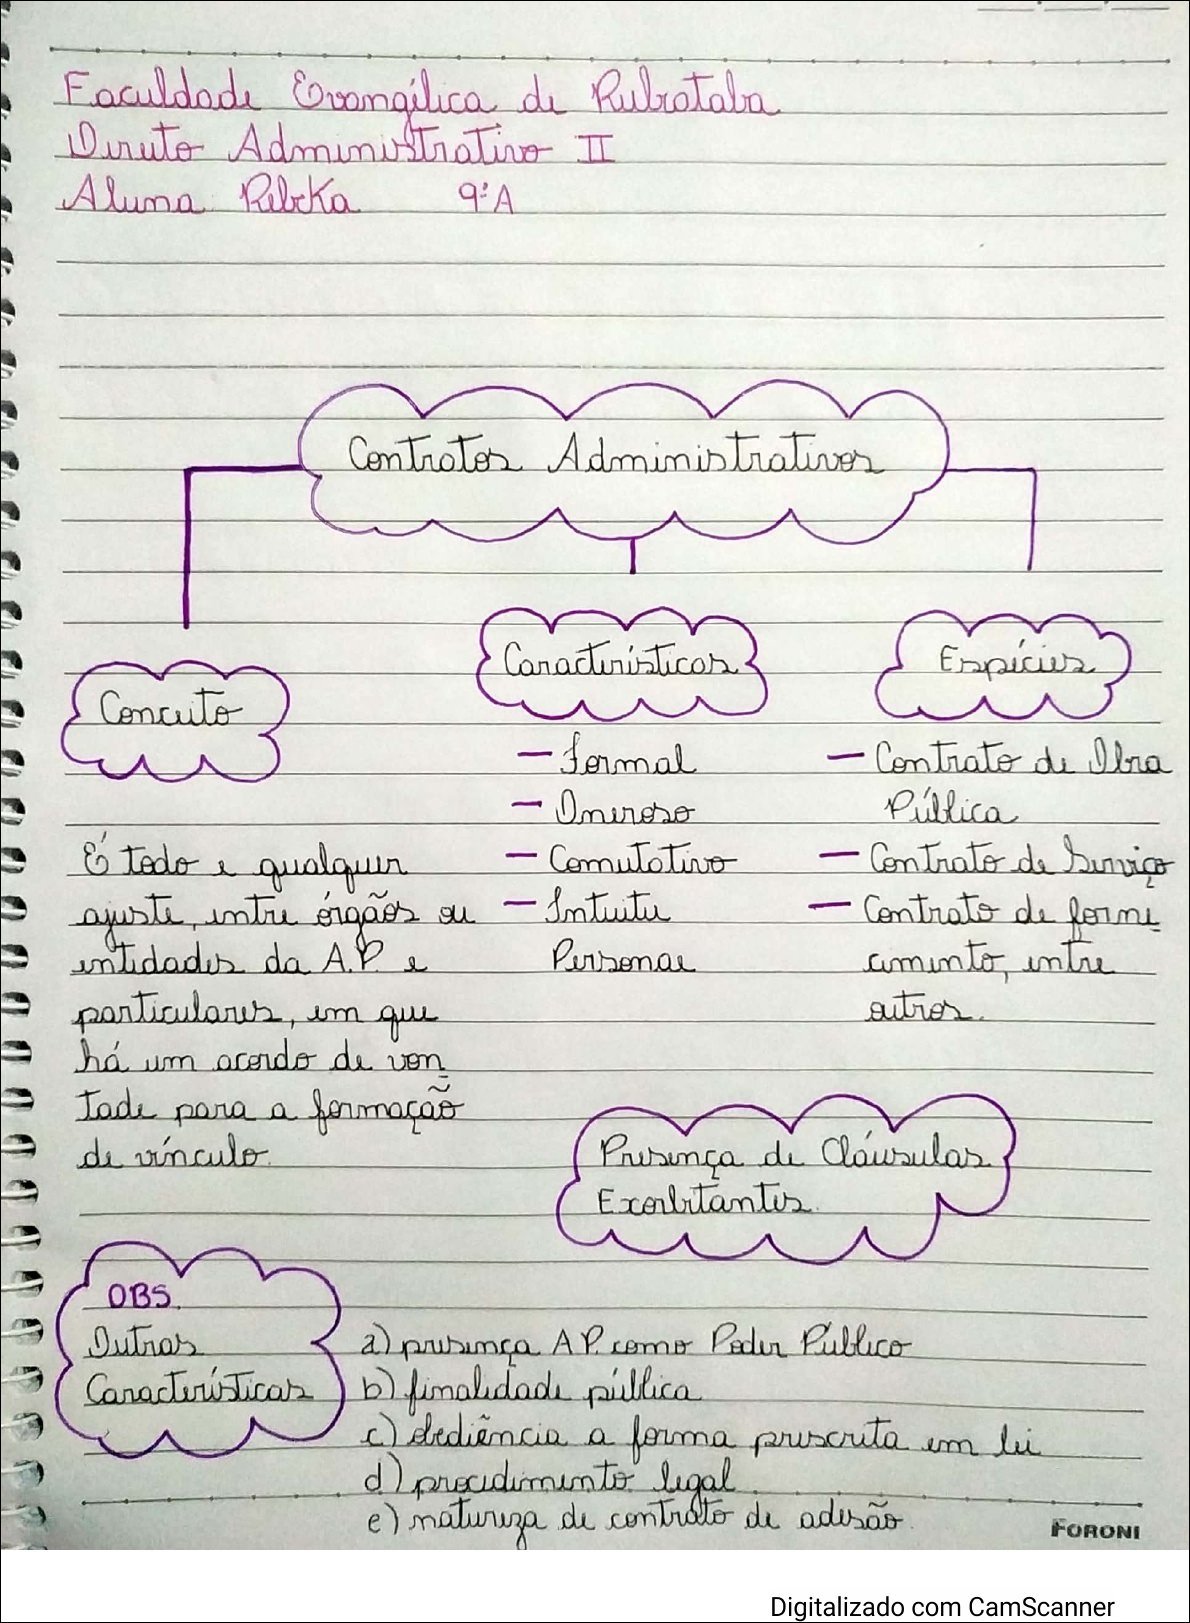 Faculdade Evangélica de Rubiataba
Direito Administrativo II
Aluna Rebeka 9ºA
Contratos Administrativos
Conceito
É todo e qualquer
ajuste, entre órgãos ou
entidades da A.P. e
particulares, em que
há um acordo de von
tade para a formação
de vínculo.
Características
- Formal
- Oneroso
- Comutativo
- Intuitu
Personae
Espécies
- Contrato de Obra
Pública
- Contrato de Serviço
- Contrato de forne
cimento, entre
outros.
Presença de Cláusulas
Exorbitantes.
OBS.
Outras
Características
a) presença A.P. como Poder Público
b) finalidade pública
c) obediência a forma prescrita em lei
d) procedimento legal
e) natureza de contrato de adesão.
FORONI
Digitalizado com CamScanner